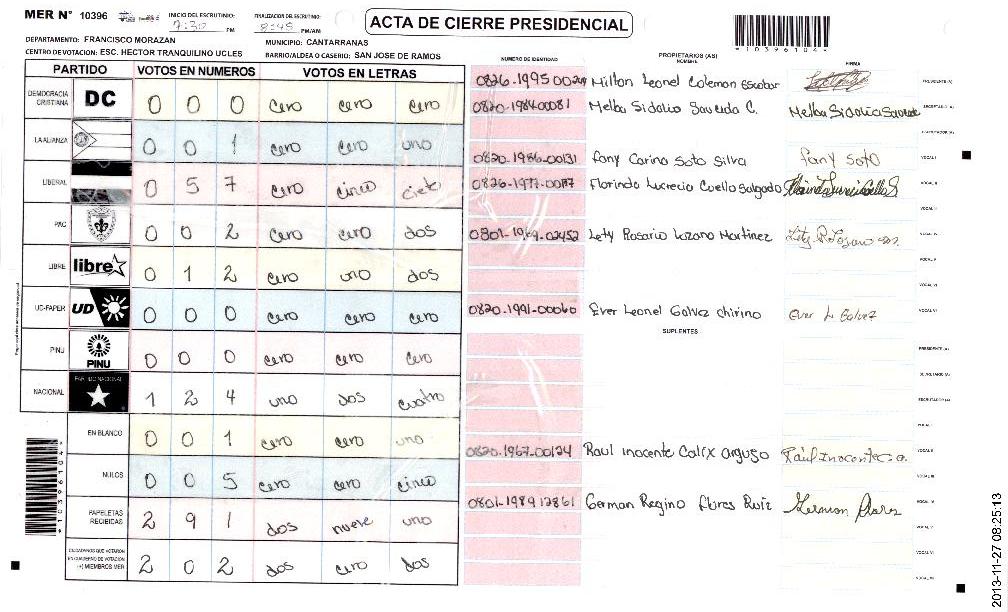 MER N° 10396 INICIO DEL ESCRUTINIO: 7:30 PM FINALIZACION DEL ESCRUTINIO: 8:45 PM/AM
ACTA DE CIERRE PRESIDENCIAL
*10396104*
DEPARTAMENTO: FRANCISCO MORAZAN MUNICIPIO: CANTARRANAS
CENTRO DE VOTACION: ESC. HECTOR TRANQUILINO UCLES BARRIO/ALDEA O CASERIO: SAN JOSE DE RAMOS
PARTIDO VOTOS EN NUMEROS VOTOS EN LETRAS
DEMOCRACIA CRISTIANA DC 0 0 0 cero cero cero
LA ALIANZA 0 0 1 cero cero uno
LIBERAL 0 5 7 cero cinco ciete
PAC 0 0 2 cero cero dos
LIBRE libre 0 1 2 cero uno dos
UD-FAPER UD 0 0 0 cero cero cero
PINU PINU 0 0 0 cero cero cero
NACIONAL PARTIDO NACIONAL 1 2 4 uno dos cuatro
EN BLANCO 0 0 1 cero cero uno
NULOS 0 0 5 cero cero cinco
PAPELETAS RECIBIDAS 2 9 1 dos nueve uno
CIUDADANOS QUE VOTARON EN CUADERNO DE VOTACION (+) MIEMBROS MER 2 0 2 dos cero dos
*10396104*
NUMERO DE IDENTIDAD PROPIETARIOS (AS) NOMBRE FIRMA
Milton Leonel Coleman Escobar PRESIDENTE (A)
0820-1984-00081 Melba Sidalia Sauceda C. Melba Sidalia Sauceda SECRETARIO (A)
ESCRUTADOR (A)
0820-1986-00131 Fany Carina Soto Silva Fany Soto VOCAL I
Florinda Lucrecia Coello Salgado VOCAL II
VOCAL III
Lety Rosario Lozano Martinez VOCAL IV
VOCAL V
VOCAL VI
0820-1991-00060 Ever Leonel Galvez chirino Ever L Galvez VOCAL VII
SUPLENTES
PRESIDENTE (A)
SECRETARIO (A)
ESCRUTADOR (A)
VOCAL I
0820-1967-00124 Raul inocente Calix VOCAL II
VOCAL III
0801-1989 12861 German Regino Flores Ruiz German Flores VOCAL IV
VOCAL V
VOCAL VI
VOCAL VII
2013-11-27 08:25:13